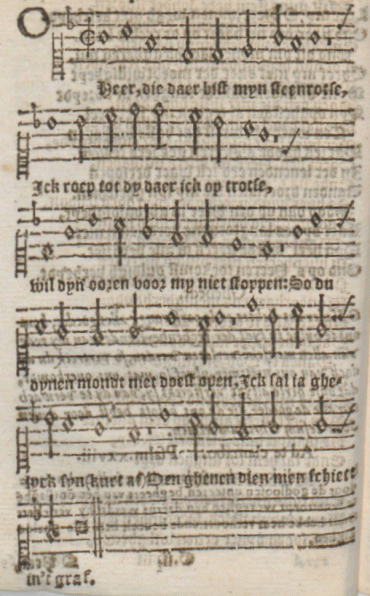 O Heer, die daer bist myn steenrotse,
Ick roep tot dy daer ick op trotse,
wil dyn ooren voor my niet stoppen: So du
dynen mondt niet doest open, Ick sal ia ghe-
lyck syn snel af, Den ghenen dien men schiet
in't graf.